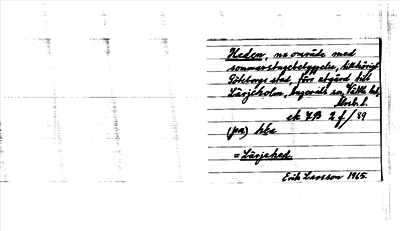 Heden, nu område med
sommarstugebebyggelse, tillhörigt
Göteborgs stad, förr utgård till
Lärjeholm, Angereds sn, Vättle hd,
Älvsb. l.
ek 7B 2 f/89
(på) héa
= Lärjehed.
Erik Larsson 1965.